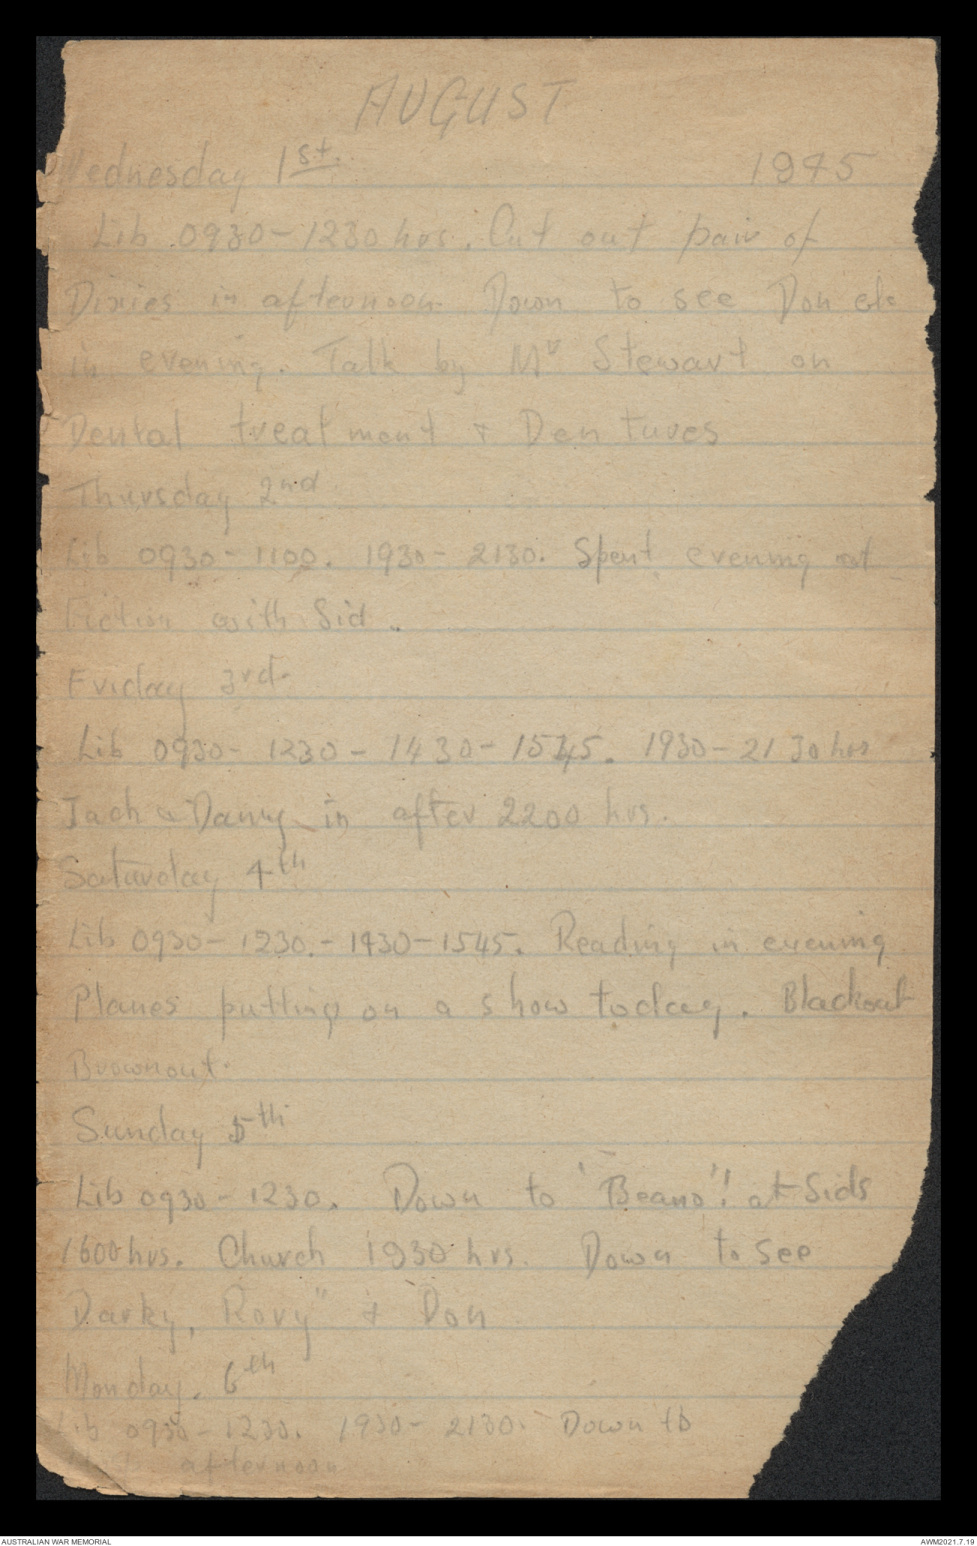 AUGUST
Wednesday 1st. 1945
Lib 0930-1230 hrs. Cut out pair of
Dixies in afternoon. Down to see Don etc
in evening. Talk by Mr Stewart on
Dental treatment + Dentures
Thursday 2nd
Lib 0930-1100. 1930-2130. Spent evening at
Fiction with Sid.
Friday 3rd.
Lib 0930-1230-1430-1545. 1930-2130 hrs
Jack & Danny in after 2200 hrs.
Saturday 4th
Lib 0930-1230.-1430-1545. Reading in evening
Planes putting on a show today. Blackout
Brownout.
Sunday 5th
Lib 0930-1230. Down to 'Beano'! at Sids
1600 hrs. Church 1930 hrs. Down to see
Darky, Rovy" + Don
Monday. 6th
Lib 0930-1230. 1930-2130. Down to
afternoon
AUSTRALIAN WAR MEMORIAL AWM2021.7.19